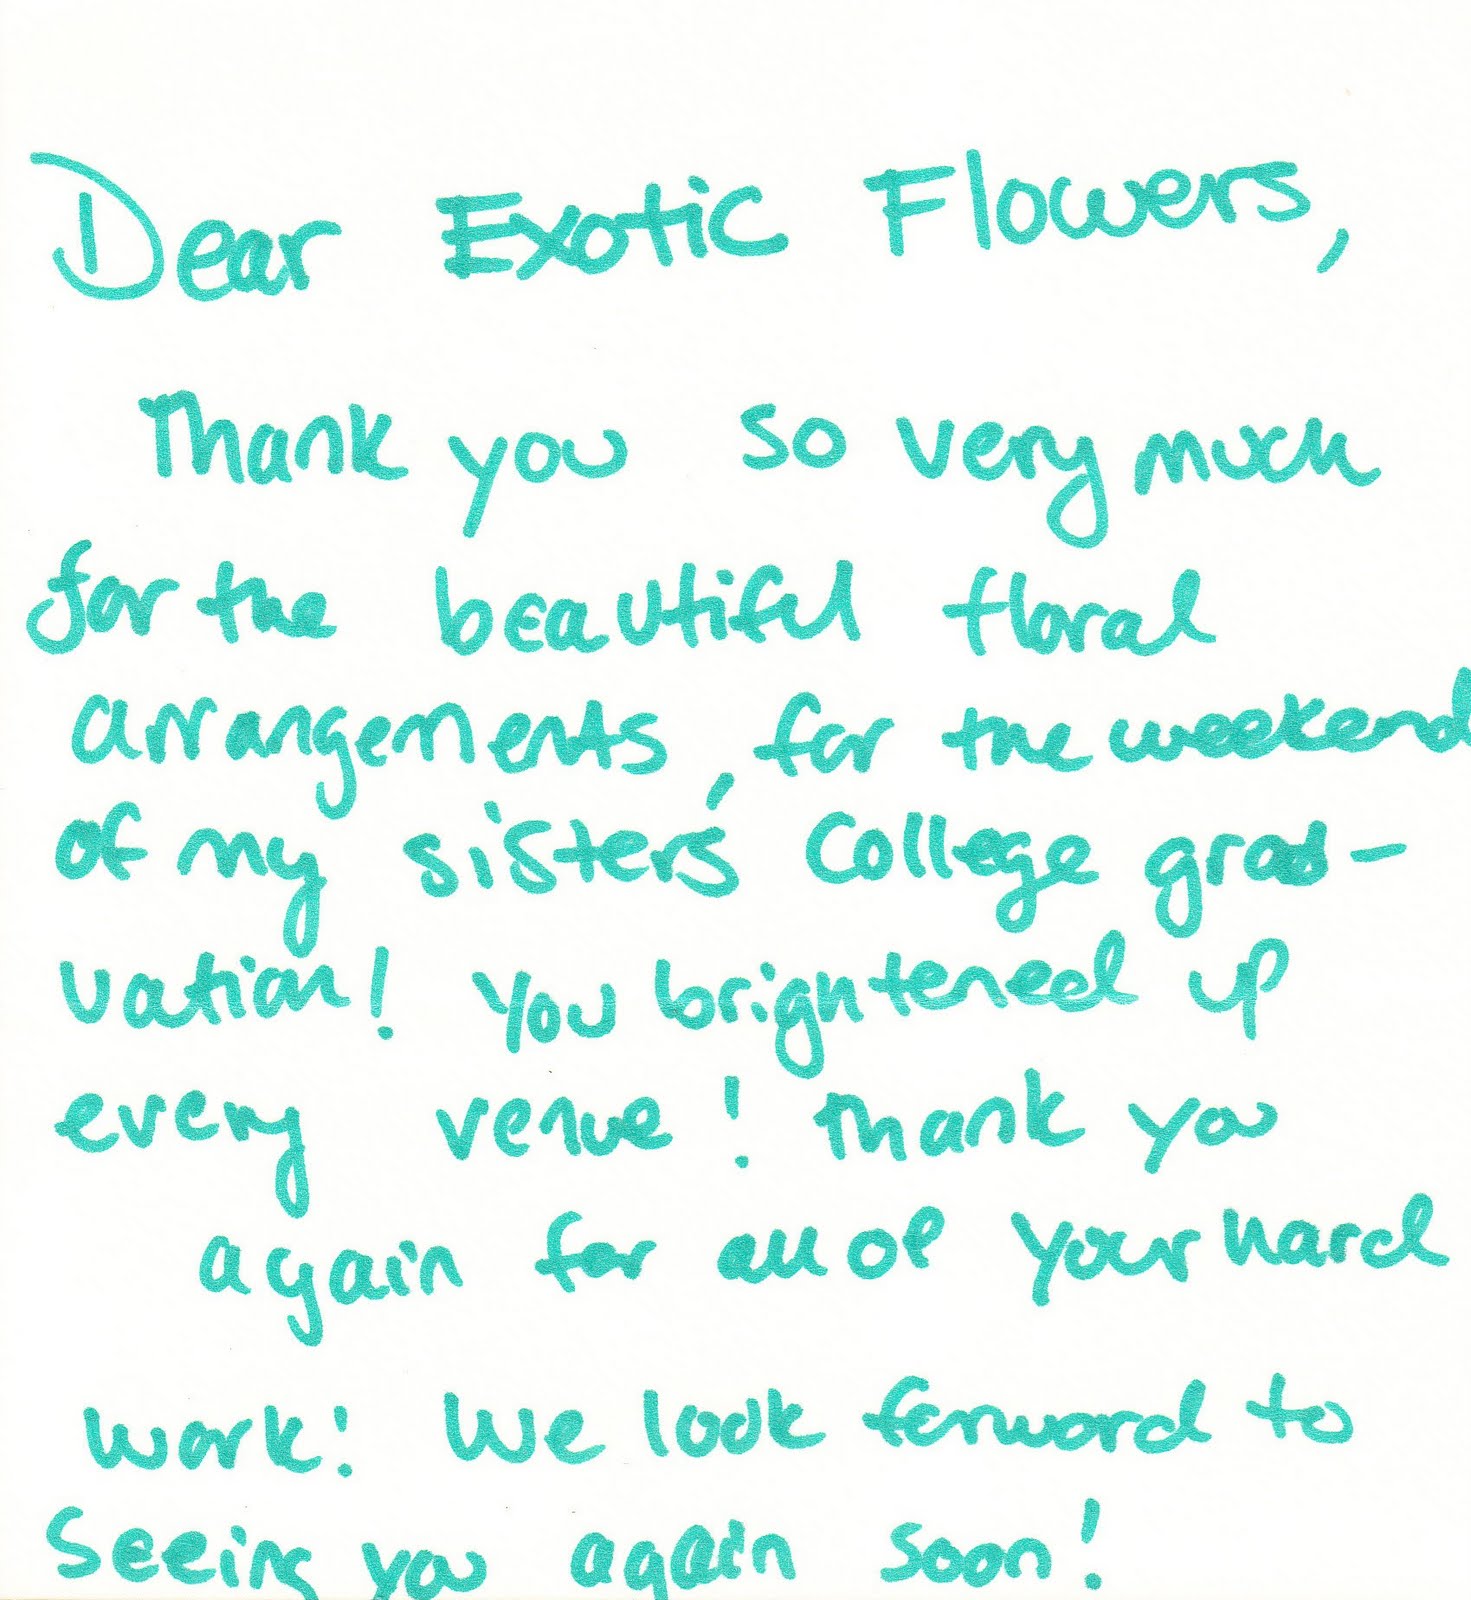 Dear Exotic Flowers,
Thank you so very much
for the beautiful floral
arrangements, for the weekend
of my sister's College grad-
uation! You brightened up
every venue! Thank you
again for all of your hard
work! We look forward to
Seeing you again soon!